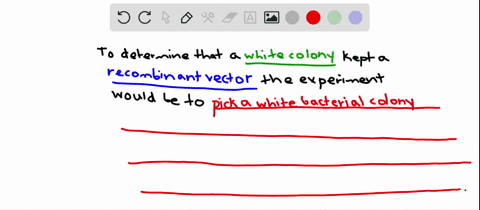 To determine that a white colony kept a
recombinant vector the experiment
would be to pick a white bacterial colony